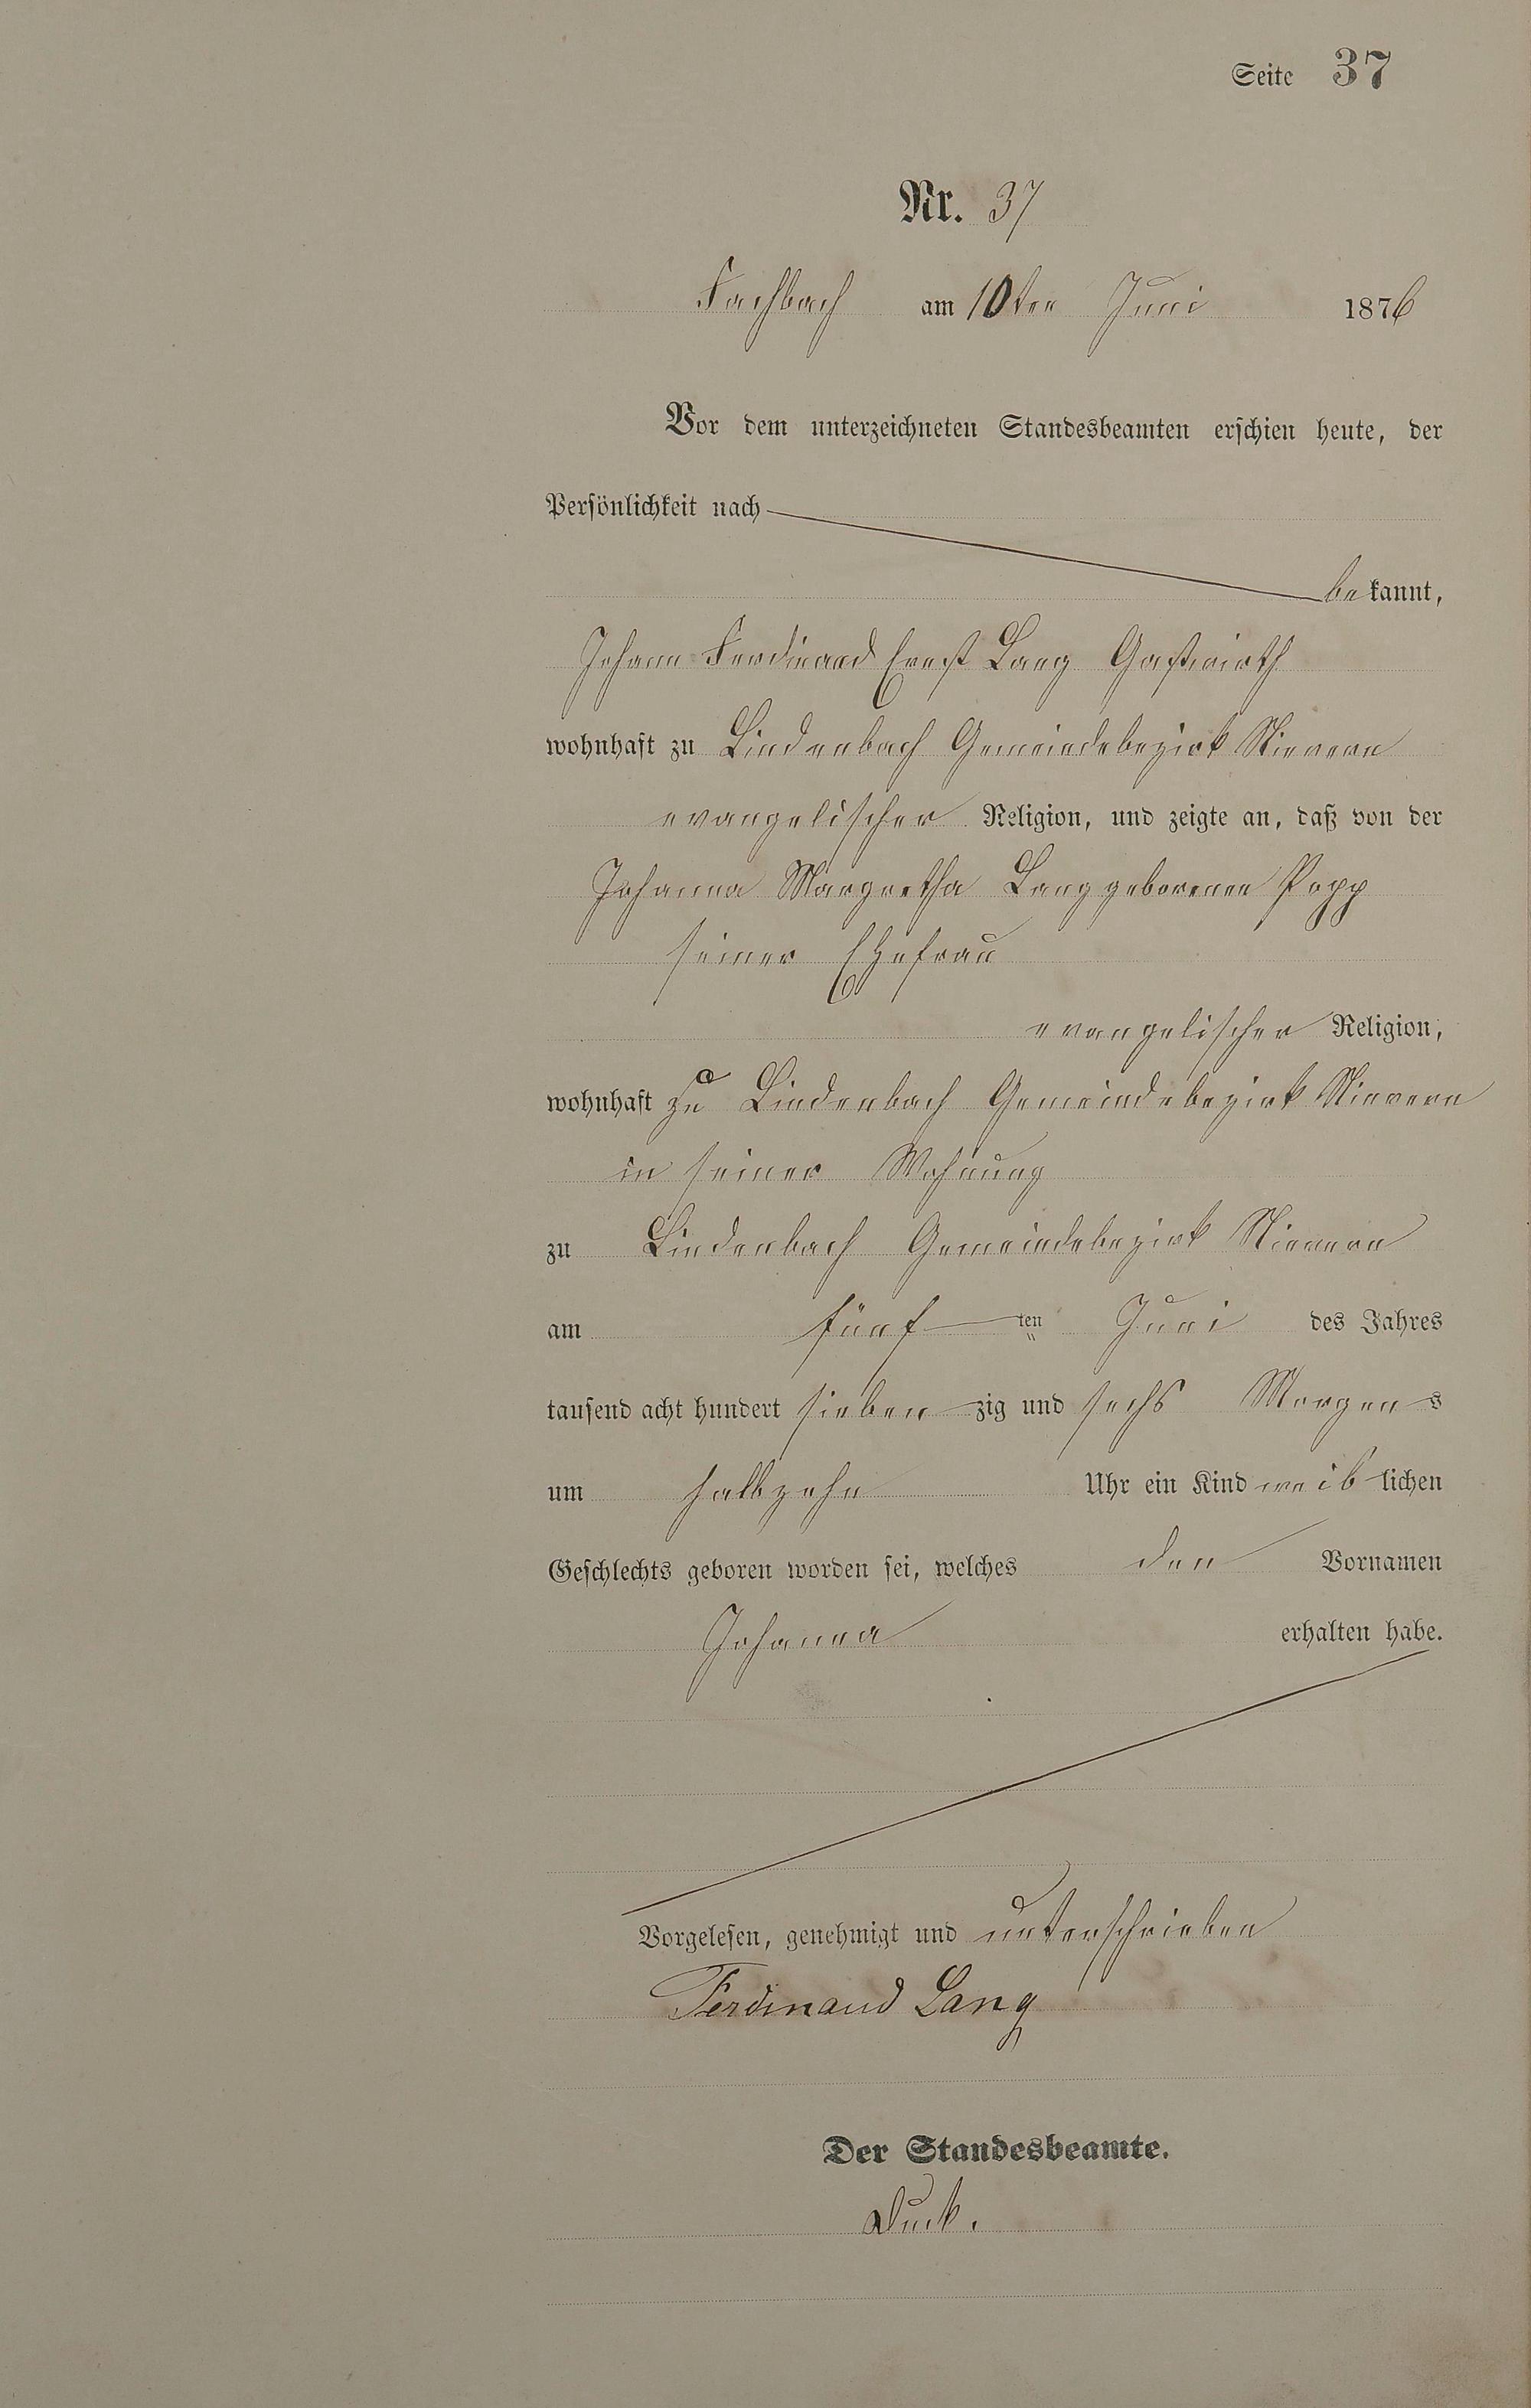 Seite 37
Nr. 37
Fachbach am 10ten Juni 1876
Vor dem unterzeichneten Standesbeamten erschien heute, der
Persönlichkeit nach
bekannt,
Johann Ferdinand Ernst Lang Gastwirth
wohnhaft zu Lindenbach Gemeindebezirk Nievern
evangelischer Religion, und zeigte an, daß von der
Johanna Margretha Lang geborenen Popp
seiner Ehefrau
evangelischer Religion,
wohnhaft zu Lindenbach Gemeindebezirk Nievern
in seiner Wohnung
zu Lindenbach Gemeindebezirk Nievern
am fünf ten Juni des Jahres
tausend acht hundert sieben zig und sechs Morgens
um halbzehn Uhr ein Kind weiblichen
Geschlechts geboren worden sei, welches den Vornamen
Johanna erhalten habe.
Vorgelesen, genehmigt und unterschrieben
Ferdinand Lang
Der Standesbeamte.
Duck.